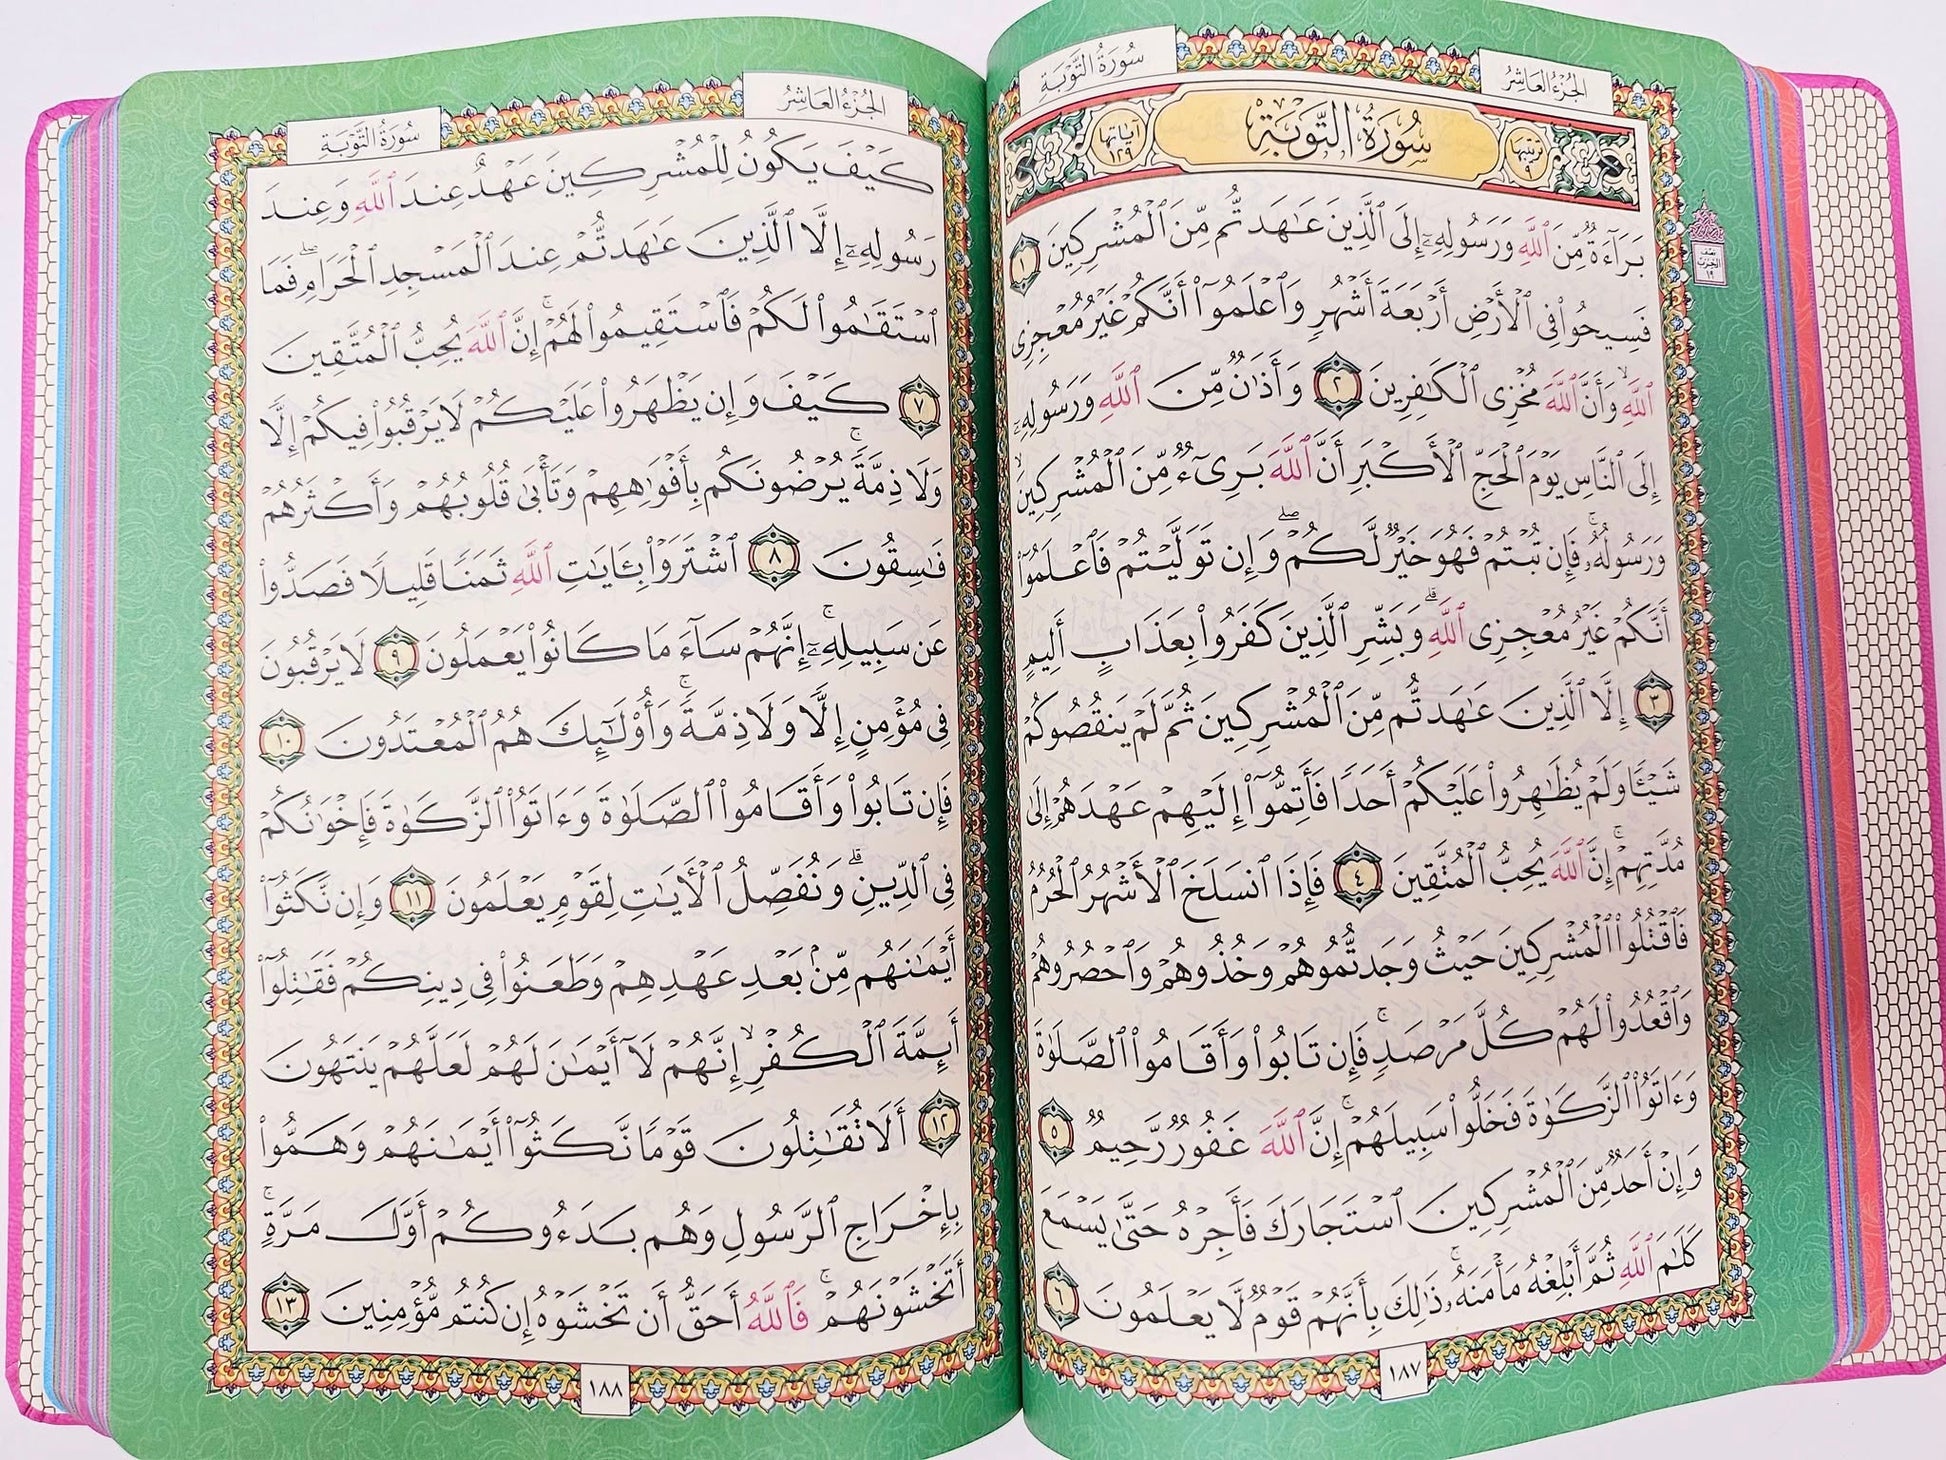 الجُزْءُ العَاشِرُ
سُورَةُ التَّوْبَةِ
ترتيبها ٩
سُورَةُ التَّوْبَةِ
آياتها ١٢٩
نصف الحزب ١٩
بَرَآءَةٌ مِّنَ ٱللَّهِ وَرَسُولِهِۦٓ إِلَى ٱلَّذِينَ عَـٰهَدتُّم مِّنَ ٱلْمُشْرِكِينَ ١
فَسِيحُوا۟ فِى ٱلْأَرْضِ أَرْبَعَةَ أَشْهُرٍ وَٱعْلَمُوٓا۟ أَنَّكُمْ غَيْرُ مُعْجِزِى
ٱللَّهِ ۙ وَأَنَّ ٱللَّهَ مُخْزِى ٱلْكَـٰفِرِينَ ٢ وَأَذَٰنٌ مِّنَ ٱللَّهِ وَرَسُولِهِۦٓ
إِلَى ٱلنَّاسِ يَوْمَ ٱلْحَجِّ ٱلْأَكْبَرِ أَنَّ ٱللَّهَ بَرِىٓءٌ مِّنَ ٱلْمُشْرِكِينَ ۙ
وَرَسُولُهُۥ ۚ فَإِن تُبْتُمْ فَهُوَ خَيْرٌ لَّكُمْ ۖ وَإِن تَوَلَّيْتُمْ فَٱعْلَمُوٓا۟
أَنَّكُمْ غَيْرُ مُعْجِزِى ٱللَّهِ ۗ وَبَشِّرِ ٱلَّذِينَ كَفَرُوا۟ بِعَذَابٍ أَلِيمٍ
٣ إِلَّا ٱلَّذِينَ عَـٰهَدتُّم مِّنَ ٱلْمُشْرِكِينَ ثُمَّ لَمْ يَنقُصُوكُمْ
شَيْـًٔا وَلَمْ يُظَـٰهِرُوا۟ عَلَيْكُمْ أَحَدًا فَأَتِمُّوٓا۟ إِلَيْهِمْ عَهْدَهُمْ إِلَىٰ
مُدَّتِهِمْ ۚ إِنَّ ٱللَّهَ يُحِبُّ ٱلْمُتَّقِينَ ٤ فَإِذَا ٱنسَلَخَ ٱلْأَشْهُرُ ٱلْحُرُمُ
فَٱقْتُلُوا۟ ٱلْمُشْرِكِينَ حَيْثُ وَجَدتُّمُوهُمْ وَخُذُوهُمْ وَٱحْصُرُوهُمْ
وَٱقْعُدُوا۟ لَهُمْ كُلَّ مَرْصَدٍ ۚ فَإِن تَابُوا۟ وَأَقَامُوا۟ ٱلصَّلَوٰةَ
وَءَاتَوُا۟ ٱلزَّكَوٰةَ فَخَلُّوا۟ سَبِيلَهُمْ ۚ إِنَّ ٱللَّهَ غَفُورٌ رَّحِيمٌ ٥
وَإِنْ أَحَدٌ مِّنَ ٱلْمُشْرِكِينَ ٱسْتَجَارَكَ فَأَجِرْهُ حَتَّىٰ يَسْمَعَ
كَلَـٰمَ ٱللَّهِ ثُمَّ أَبْلِغْهُ مَأْمَنَهُۥ ۚ ذَٰلِكَ بِأَنَّهُمْ قَوْمٌ لَّا يَعْلَمُونَ ٦
١٨٧
الجُزْءُ العَاشِرُ
سُورَةُ التَّوْبَةِ
كَيْفَ يَكُونُ لِلْمُشْرِكِينَ عَهْدٌ عِندَ ٱللَّهِ وَعِندَ
رَسُولِهِۦٓ إِلَّا ٱلَّذِينَ عَـٰهَدتُّمْ عِندَ ٱلْمَسْجِدِ ٱلْحَرَامِ ۖ فَمَا
ٱسْتَقَـٰمُوا۟ لَكُمْ فَٱسْتَقِيمُوا۟ لَهُمْ ۚ إِنَّ ٱللَّهَ يُحِبُّ ٱلْمُتَّقِينَ
٧ كَيْفَ وَإِن يَظْهَرُوا۟ عَلَيْكُمْ لَا يَرْقُبُوا۟ فِيكُمْ إِلًّا
وَلَا ذِمَّةً ۚ يُرْضُونَكُم بِأَفْوَٰهِهِمْ وَتَأْبَىٰ قُلُوبُهُمْ وَأَكْثَرُهُمْ
فَـٰسِقُونَ ٨ ٱشْتَرَوْا۟ بِـَٔايَـٰتِ ٱللَّهِ ثَمَنًا قَلِيلًا فَصَدُّوا۟
عَن سَبِيلِهِۦٓ ۚ إِنَّهُمْ سَآءَ مَا كَانُوا۟ يَعْمَلُونَ ٩ لَا يَرْقُبُونَ
فِى مُؤْمِنٍ إِلًّا وَلَا ذِمَّةً ۚ وَأُو۟لَـٰٓئِكَ هُمُ ٱلْمُعْتَدُونَ ١٠
فَإِن تَابُوا۟ وَأَقَامُوا۟ ٱلصَّلَوٰةَ وَءَاتَوُا۟ ٱلزَّكَوٰةَ فَإِخْوَٰنُكُمْ
فِى ٱلدِّينِ ۗ وَنُفَصِّلُ ٱلْـَٔايَـٰتِ لِقَوْمٍ يَعْلَمُونَ ١١ وَإِن نَّكَثُوٓا۟
أَيْمَـٰنَهُم مِّنۢ بَعْدِ عَهْدِهِمْ وَطَعَنُوا۟ فِى دِينِكُمْ فَقَـٰتِلُوٓا۟
أَئِمَّةَ ٱلْكُفْرِ ۙ إِنَّهُمْ لَآ أَيْمَـٰنَ لَهُمْ لَعَلَّهُمْ يَنتَهُونَ
١٢ أَلَا تُقَـٰتِلُونَ قَوْمًا نَّكَثُوٓا۟ أَيْمَـٰنَهُمْ وَهَمُّوا۟
بِإِخْرَاجِ ٱلرَّسُولِ وَهُم بَدَءُوكُمْ أَوَّلَ مَرَّةٍ ۚ
أَتَخْشَوْنَهُمْ ۚ فَٱللَّهُ أَحَقُّ أَن تَخْشَوْهُ إِن كُنتُم مُّؤْمِنِينَ ١٣
١٨٨